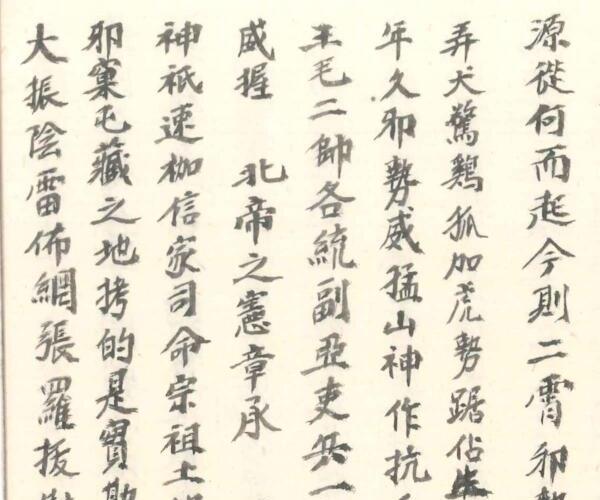 源從何而起今則二霄邪
弄犬驚鷄狐加虎勢踞佔
年久邪勢威猛山神作抗
王毛二帥各統副亞吏兵一
威握 北帝之憲章承
神祇速枷信家司命宗祖土
邪窠屯藏之地拷的是實勘
大振陰雷佈網張羅援